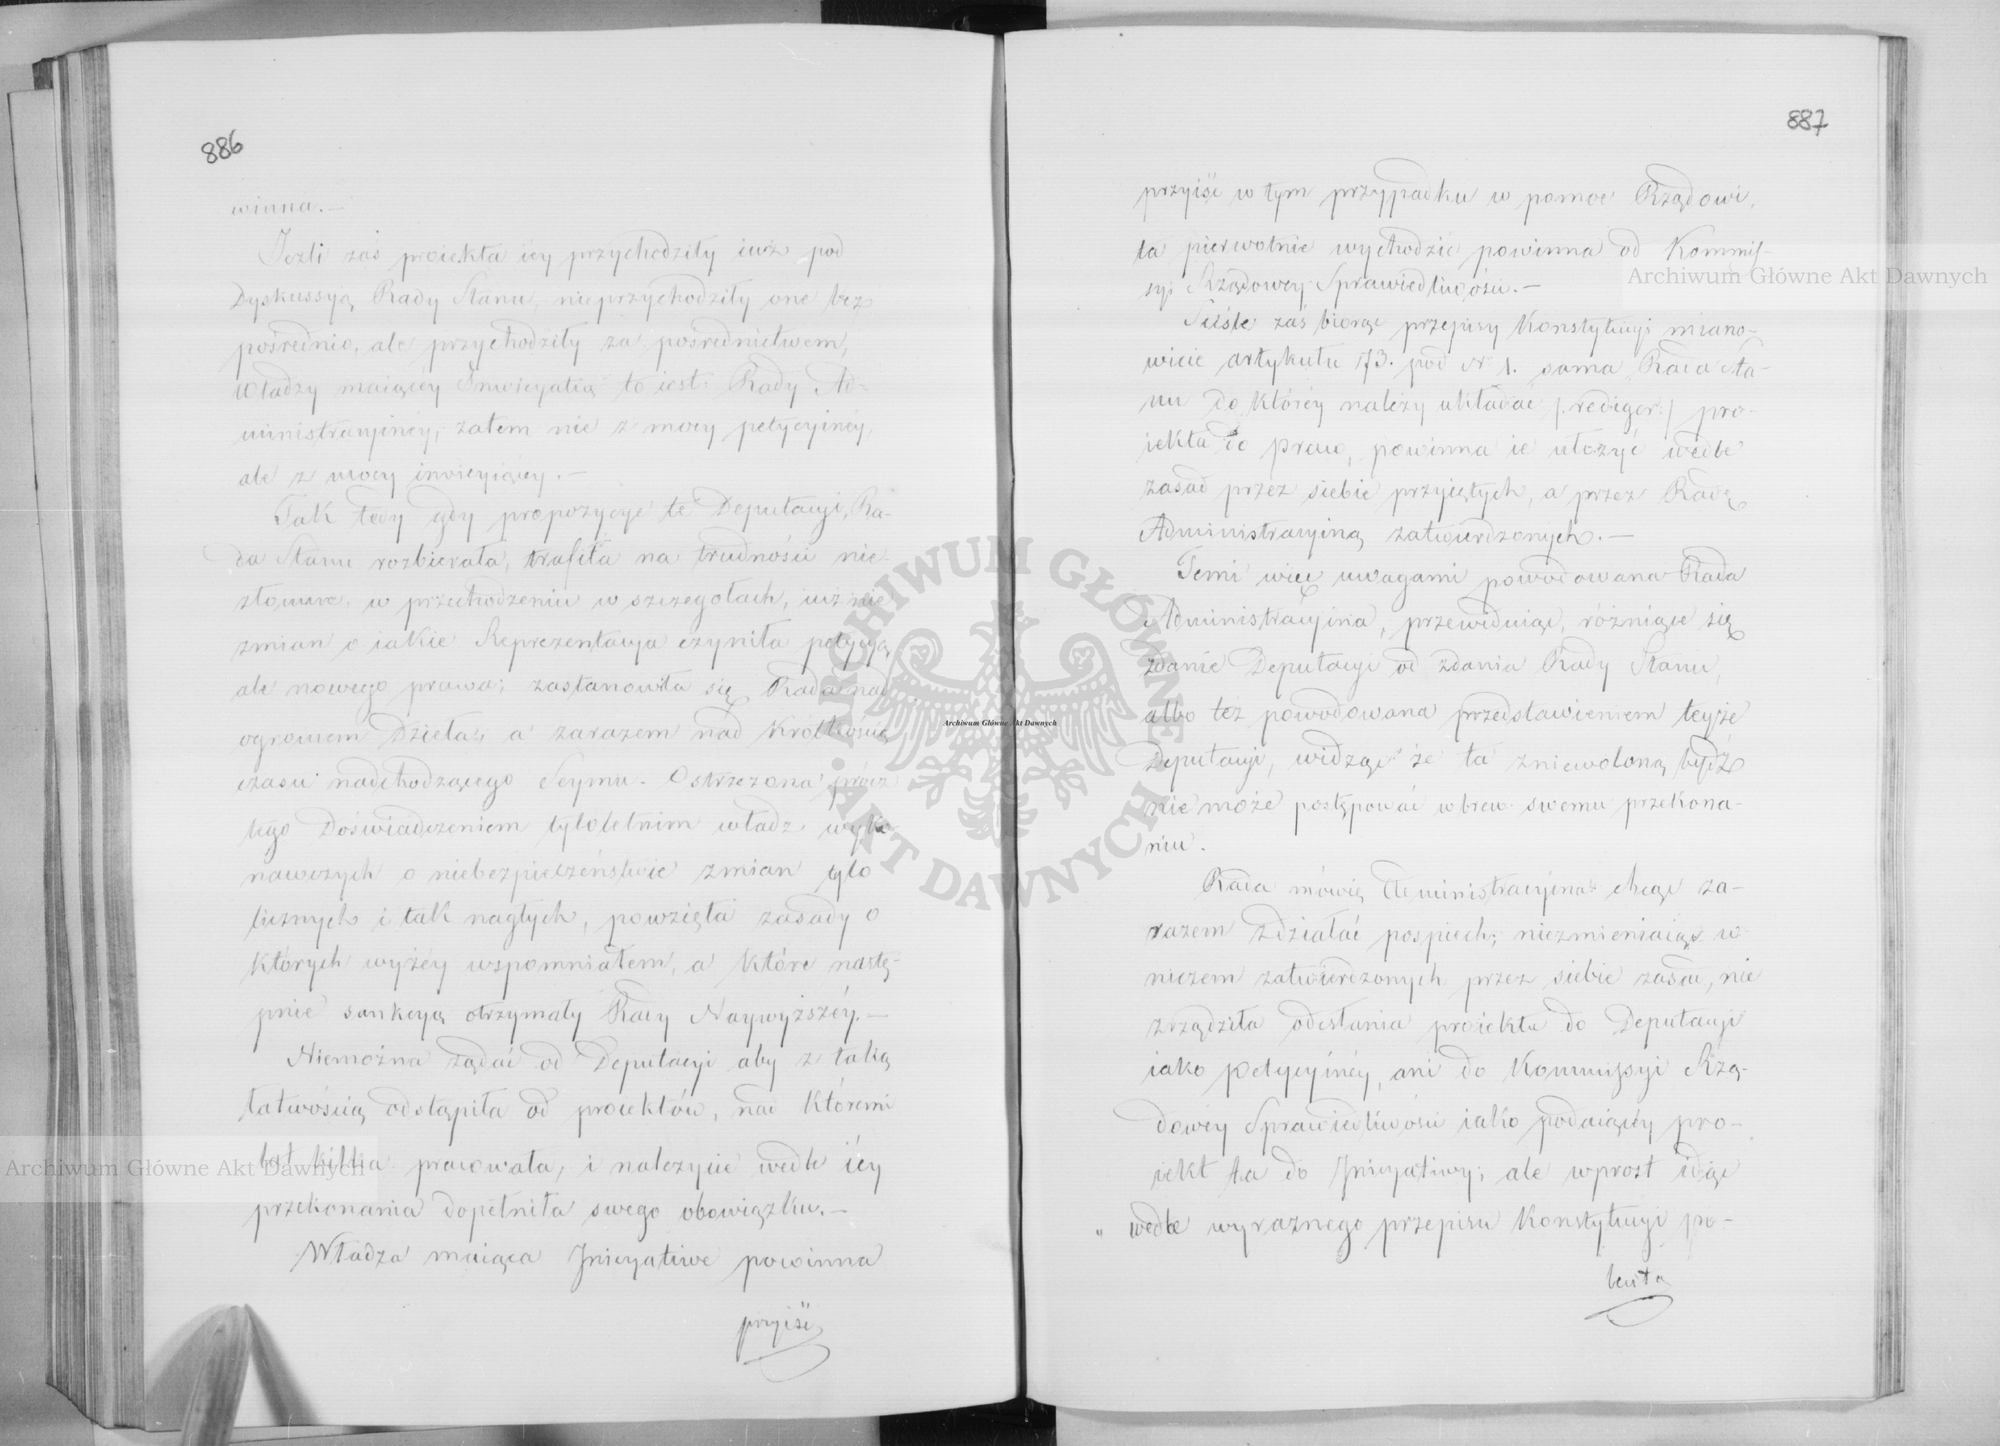 886
winna.—
Jeżli zaś proiekta iey przychodziły iuż pod
Dyskussyią Rady Stanu, nieprzychodziły one bez
pośrednio, ale przychodziły za pośrednictwem,
Władzy maiącéy Inicyatią to iest: Rady Ad-
ministracyinéy, zatem nie z mocy petycyinéy,
ale z mocy
Tak tedy gdy propozycye te Deputacyi, Ra-
da Stanu rozbierała, trafiła na trudności nie
złomne, w przechodzeniu w szczegołach, iuż nie
zmian o iakie Reprezentacya czyniła petycyą
ale nowego prawa; zastanowiła się Rada nad
ogromem Dzieła, a zarazem nad krótkością
czasu nadchodzącego Seymu. Ostrzeżona prócz
tego Doświadczeniem tyloletnim władz wyko
nawczych o niebezpieczeństwie zmian tylo
licznych i tak nagłych, powzięła zasady o
których wyżéy wspomniałem, a które nastę-
pnie sankcyą otrzymały Rady Naywyższéy.—
Niemożna żądać od Deputacyi aby z taką
łatwością odstąpiła od proiektów, nad któremi
lat kilka pracowała, i należycie wedle iéy
przekonania dopełniła swego obowiązku.—
Władza maiąca Jnicyatiwe powinna
przyiść
887
przyiść w tym przypadku w pomoc Rządowi,
ta pierwotnie wychodzić powinna od Kommis-
syi Rządowey Sprawiedliwości.—
Ściśle zaś biorąc przepisy Konstytucyi miano-
wicie artykułu 73. pod N 1. sama Rada Sta-
nu do któréy należy układać /:rediger:/ pro-
iekta do praw, powinna ie ułożyć wedle
zasad przez siebie przyiętych, a przez Radę
Administracyiną zatwierdzonych.—
Temi więc uwagami powodowana Rada
Administracyina, przewiduiąc, różniące się
zdanie Deputacyi od zdania Rady Stanu,
albo też powodowana przedstawieniem teyże
Deputacyi, widząc że ta zniewoloną bydź
nie może postępować wbrew swemu przekona-
niu.
Rada mówię Administracyina chcąc za-
razem zdziałać pospiech; niezmieniaiąc w
niczem zatwierdzonych przez siebie zasad, nie
zrządziła odesłania proiektu do Deputacyi
iako petycyinéy, ani do Kommissyi Rzą-
dowéy Sprawiedliwości iako podaiącéy pro-
iekt ta do Jnicyatiwy; ale wprost idąc
wedle wyraznego przepisu Konstytucyi po-
Archiwum Główne Akt Dawnych
Archiwum Główne Akt Dawnych
Archiwum Główne Akt Dawnych
ARCHIWUM GŁÓWNE · AKT DAWNYCH ·